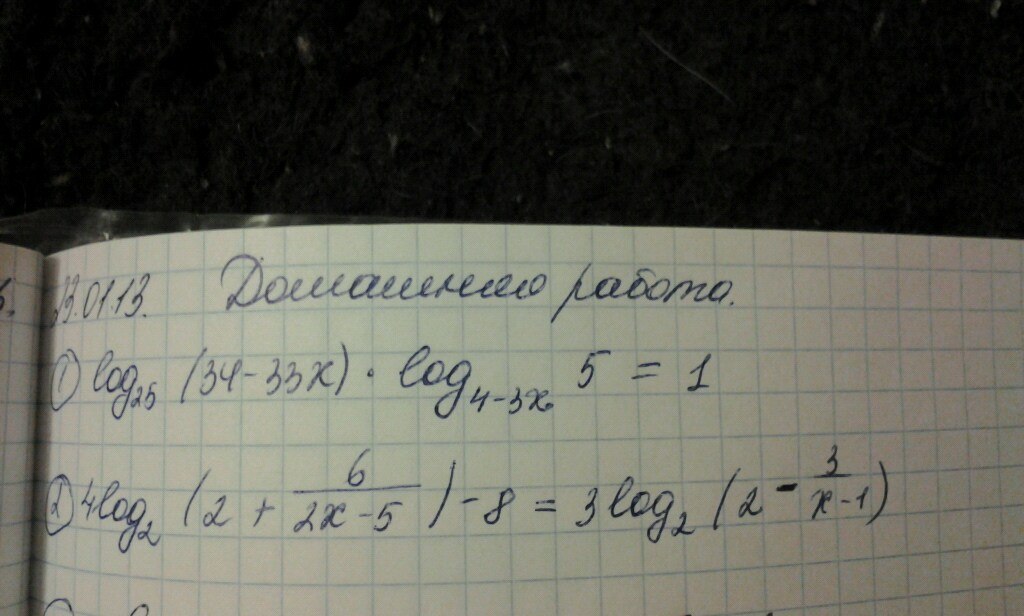 23.01.13. Домашняя работа.
① log₂₅ (34-33x) · log₄₋₃ₓ 5 = 1
② 4log₂ (2 + 6/(2x-5)) - 8 = 3log₂ (2 - 3/(x-1))